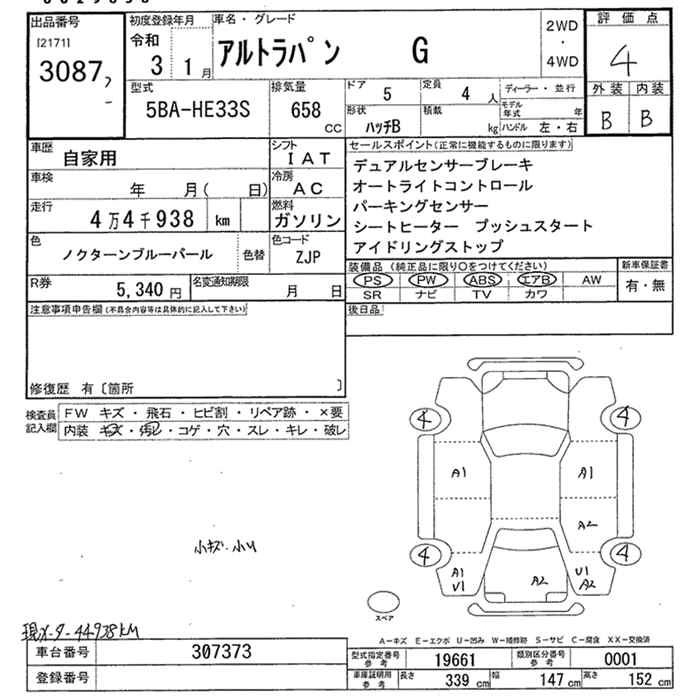 出品番号
[2171]
3087
初度登録年月
令和
3 1月
車名・グレード
アルトラパン G
2WD
・
4WD
評価点
4
外装 内装
B B
型式
5BA-HE33S
排気量
658 CC
ドア 5
定員 4 人
ディーラー・並行
形状 ハッチB
積載 kg
モデル年式 年
ハンドル 左・右
車歴 自家用
シフト IAT
車検 年 月( 日)
冷房 AC
走行 4万4千938 km
燃料 ガソリン
色 ノクターンブルーパール 色替
色コード ZJP
R券 5,340円
名変通知期限 月 日
セールスポイント(正常に機能するものに限ります)
デュアルセンサーブレーキ
オートライトコントロール
パーキングセンサー
シートヒーター プッシュスタート
アイドリングストップ
装備品(純正品に限り○をつけてください)
PS PW ABS エアB AW
SR ナビ TV カワ
新車保証書
有・無
後日品
注意事項申告欄(不具合内容等は具体的に記入して下さい)
修復歴 有〔箇所 〕
検査員記入欄
FW キズ・飛石・ヒビ割・リペア跡・×要
内装 キズ・汚レ・コゲ・穴・スレ・キレ・破レ
4 4
A1 A1
A2
4 4
A1
V1
A2
U1
A2
小キズ、小U
スペア
現メーター44938KM
A-キズ E-エクボ U-凹み W-補修跡 S-サビ C-腐食 XX-交換済
車台番号 307373
登録番号
型式指定番号参考 19661
類別区分番号参考 0001
車庫証明用参考
長さ 339 cm
幅 147 cm
高さ 152 cm